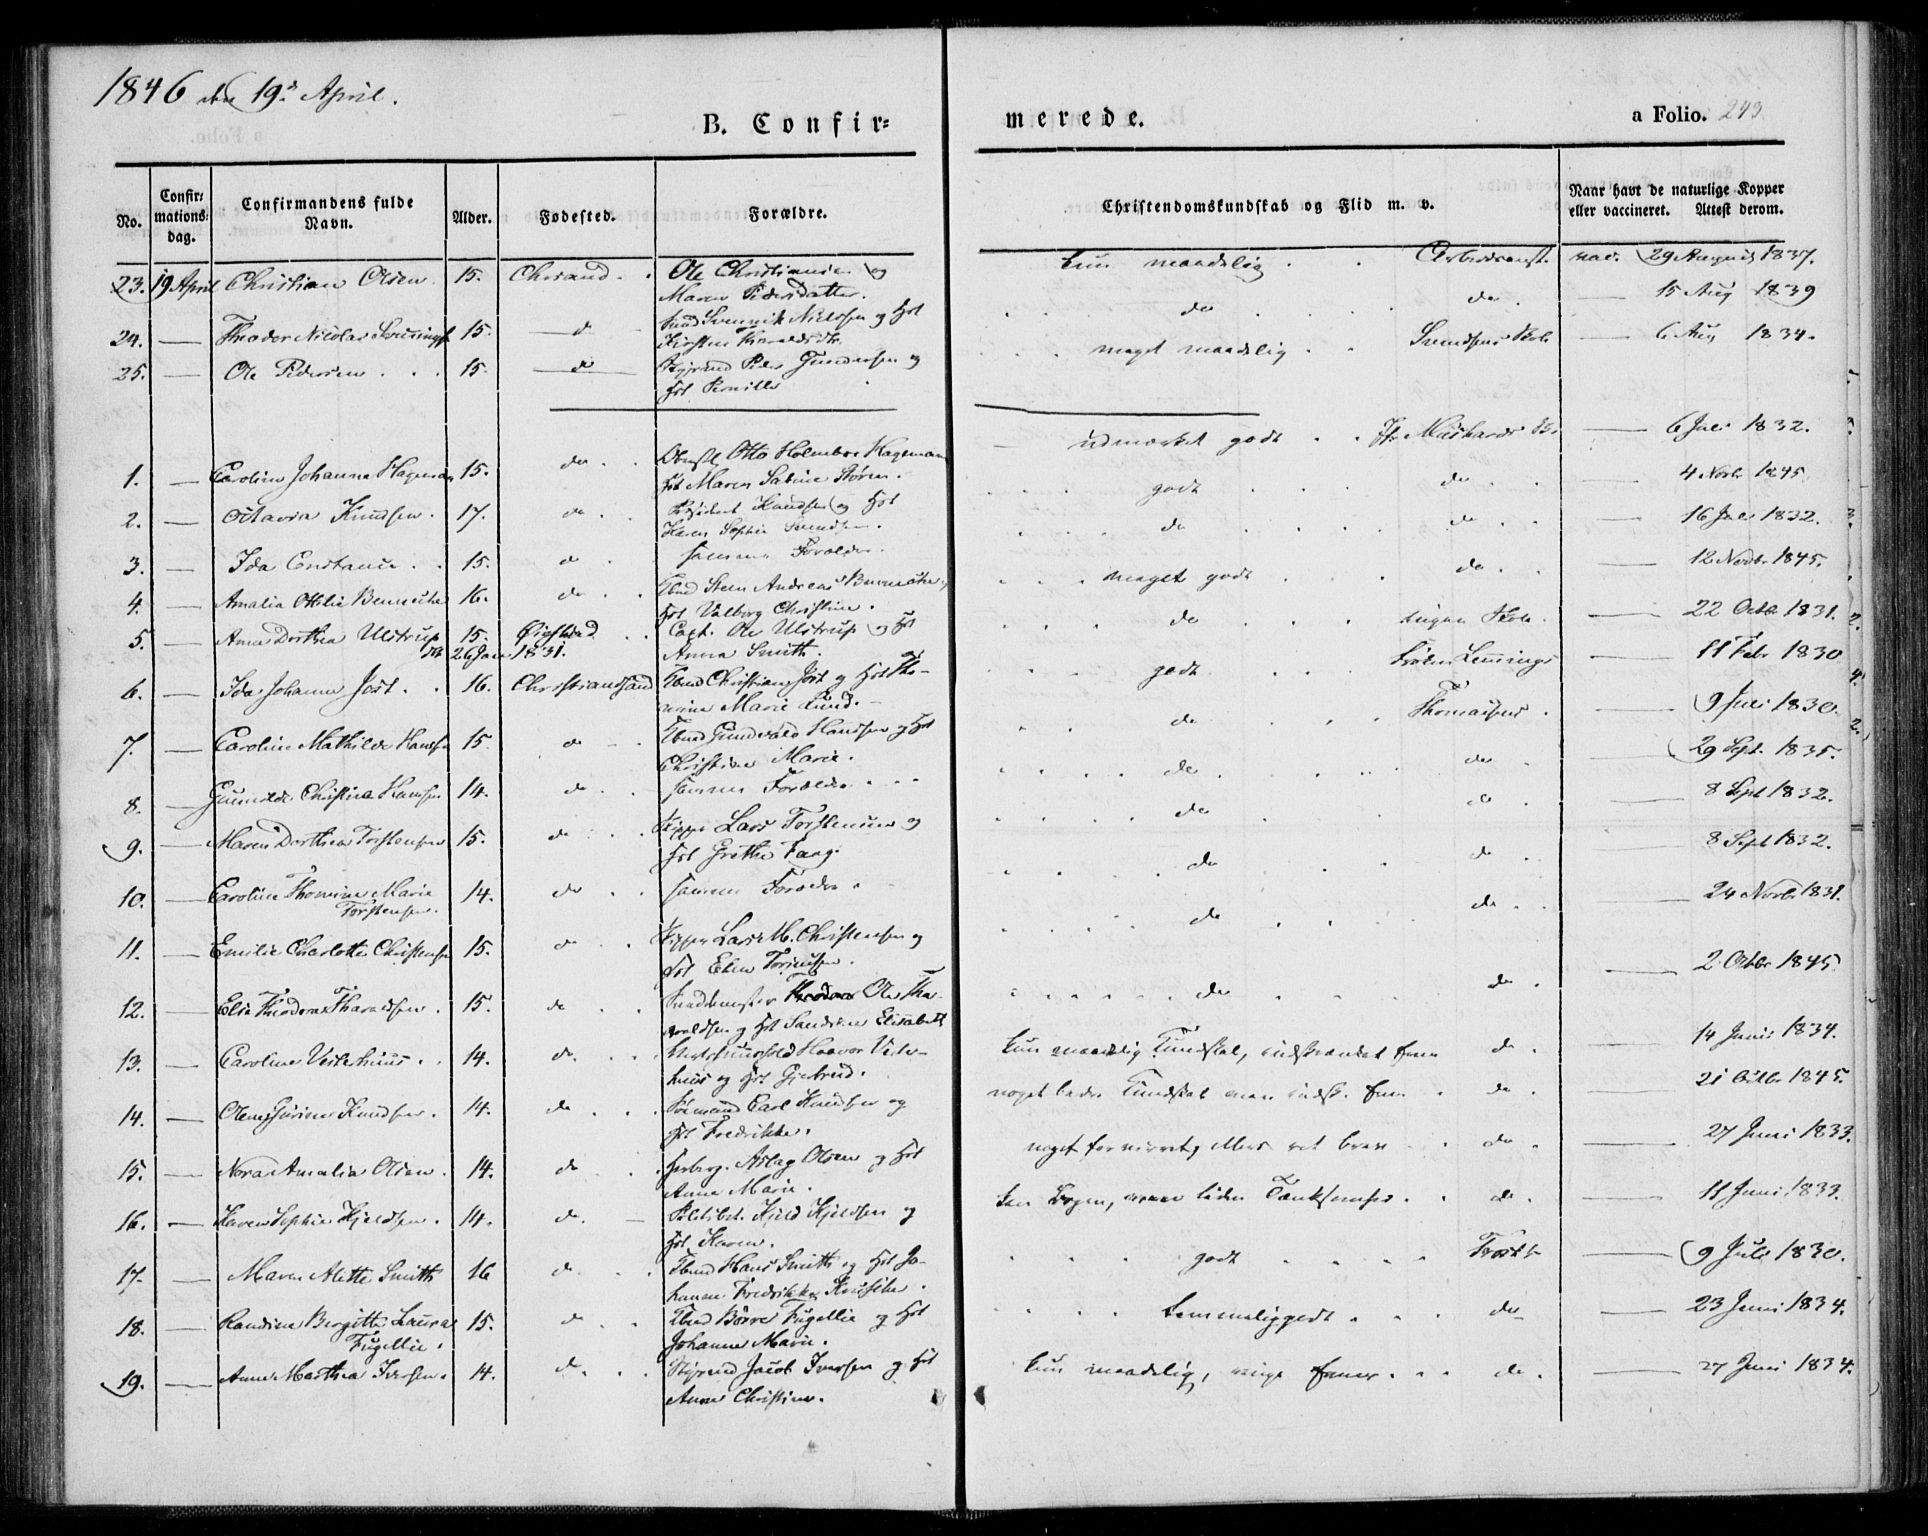 1846 den 19de April.
B. Confir= merede. a Folio. 243
No. Confir= mations= dag. Confirmandens fulde Navn. Alder. Fødested. Forældre. Christendomskundskab og Flid m. v. Naar havt de naturlige Kopper eller vaccineret. Attest derom.
23. 19 April Christian Olsen. 15. Chrsand. Ole Christiansen og kun maadelig Arbeidsanst. vac. 29 August 1837.
Maren Pedersdatter.
24. — Theodor Nicolai 15. — d Svennik Nielsen og Hst do do — 15 Aug 1839
Kirsten
25. — Ole Pedersen 15. do Peder Gundersen og meget maadelig Svendsens Skole — 6 Aug 1834.
Hst Pernille
1. — Caroline Johanne Hageman 15. do Otto Holmboe Hageman udmærket godt Fr. — 6 Juli 1832.
Hst Maren Sabine Støren.
2. — Octavia Knudsen. 17. do Knudsen og Hst godt do — 4 Novbr 1845
Karen Sophie Svendsen.
3. — Ida Constance 15. do samme Forældre. do do — 16 Juli 1832.
4. — Amalia Ottilie 16. do Steen Andreas meget godt do — 12 Novbr 1845.
Hst Valborg Christine.
5. — Anne Dorthea Ulstrup 15. Capt. Ole Ulstrup og Hst do ingen Skole — 22 Octbr 1831.
26 Jan 1831. Anna Smith.
6. — Ida Johanne Jost 16. Christiandsand Christian Jost og Hst Tho- godt — 11 Febr 1830
mine Marie Lund.
7. — Caroline Mathilde Hansen 15. do Gundvald Hansen og Hst do Thomassens — 9 Juli 1830.
Christine Marie.
8. — Gunvilde Christine Hansen 14. do samme Forældre do do — 29 Sept. 1835.
9. — Maren Dorthea Torstensen 15. do Skipper Lars Torstensen og do do — 8 Sept 1832.
Hst Grethe Fang.
10. — Caroline Thomine Marie 14. do samme Forældre do do — 8 Sept 1832.
Torstensen.
11. — Emilie Charlotte Christensen 15. do Skipper Lars M. Christensen og do do — 24 Novbr 1831.
Hst Elen
12. — Elen Theodora Tharaldsen. 15. do Ole Tha- do do — 2 Octbr 1845
raldsen og Hst Sandrine Elisabeth
13. — Caroline Vesterhuus 14. do Haavor Vester- kun maadelig Kundskab, indskrænket Evne do — 14 Juni 1834.
huus og Hst Gjertrud.
14. — Olene Sørine Knudsen. 14. do Sømand Carl Knudsen og noget bedre Kundskab men indsk. Evne do — 21 Octbr 1845.
Hst Fredrikke.
15. — Nora Amalia Olsen. 14. do Aslag Olsen og Hst noget forvirret, ellers ret brav do — 27 Juni 1833.
Anne Marie.
16. — Karen Sophie Kjeldsen. 14. do. Kjeld Kjeldsen og kan Bogen, men liden Tænksomhed do — 11 Juni 1833.
Hst Karen.
17. — Maren Alette Smith 16 do Hans Smith og Hst Jo- godt — 9 Juli 1830.
hanne Fredrikke
18. — Randine Birgitte Laura 15. do Børre Fugellie og Hst temmeliggodt do — 23 Juni 1834.
Fugellie. Johanne Marie.
19. — Anne Marthea Iversen. 14. do Jacob Iversen og Hst kun maadelig, ringe Evner do — 27 Juni 1834.
Anne Christine.